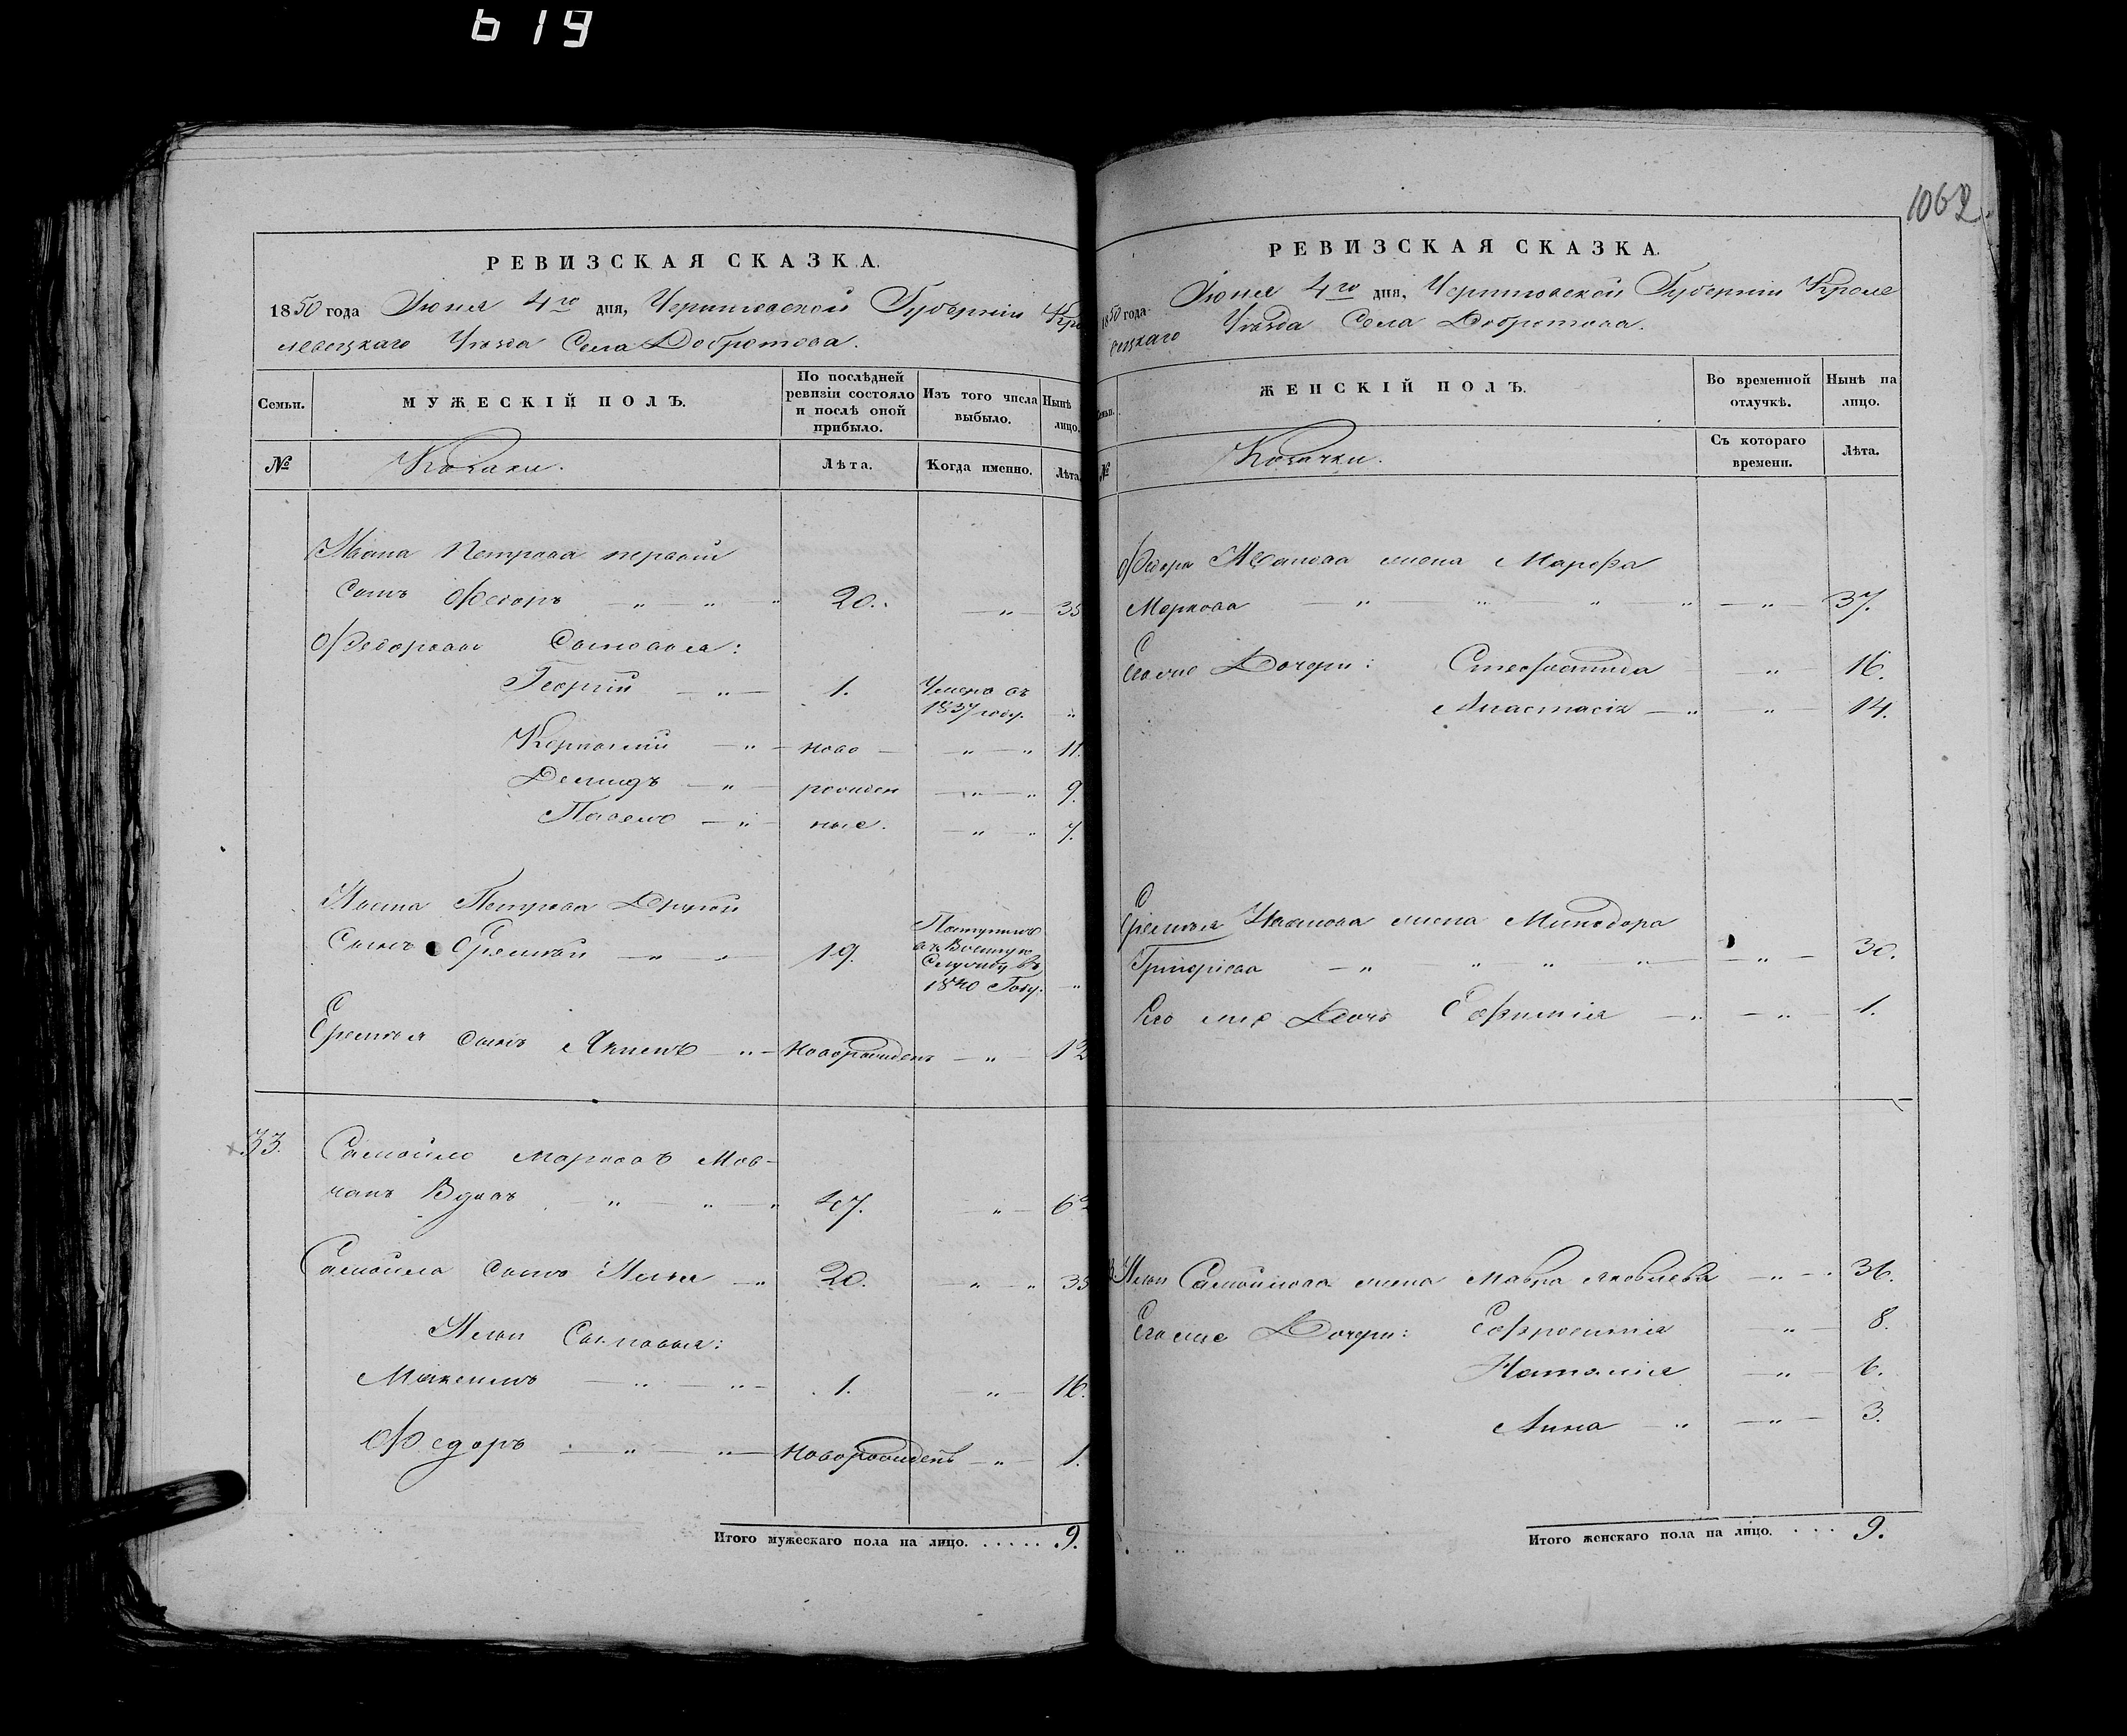 619
РЕВИЗСКАЯ СКАЗКА.
1850 года Июня 4го дня, Черниговской Губерніи Кро
левецкаго Уѣзда Села Добротова.
Семьи.
МУЖЕСКІЙ ПОЛЪ.
По послѣдней ревизіи состояло и послѣ оной прибыло.
Изъ того числа выбыло.
Нынѣ
лицо.
№
Козаки.
Лѣта.
Когда именно.
Лѣта.
Ивана Петрова первый
Сынъ Федоръ — „ — „ „ 20. — „ — 35
Федоровы Сыновья:
Георгій — „ — 1. Умеръ въ
1837 году. „
Корнилій — „ — ново — „ — „ 11.
Демидъ — „ — рожден — „ — „ 9.
Павелъ — „ — ные. — „ — „ 7.
Ивана Петрова Другой
Сынъ Еремѣй — „ — „ 19. Поступилъ
въ Военную
Службу въ
1840 Году. „
Еремѣя сынъ Акимъ — „ — Новорожденъ — „ — 12
33. Самойло Марковъ Мов-
чанъ Вдовъ — „ — „ — „ 47. — „ — 62
Самойла сынъ Илья — „ 20. — „ — „ 35
Ильи Сыновья:
Максимъ — „ — „ — 1. „ — 16.
Федоръ — „ — „ — Новорожденъ — „ — 1.
Итого мужескаго пола на лицо. . . . . . 9.
1062.
РЕВИЗСКАЯ СКАЗКА.
1850 года Июня 4го дня, Черниговской Губерніи Кроле
вецкаго Уѣзда Села Добротова.
Семьи.
ЖЕНСКІЙ ПОЛЪ.
Во временной отлучкѣ.
Нынѣ на лицо.
№
Козачки.
Съ котораго времени.
Лѣта.
Федора Иванова жена Марфа
Маркова — „ „ „ „ — „ — 37.
Его же Дочери: Стефанида — „ — 16.
Анастасія — „ — „ — 14.
Еремѣя Иванова жена Минодора
Григорьева — „ „ „ „ — „ — 30.
Его же Дочь Евфимія — „ — „ — 1.
Ильи Самойлова жена Мавра Яковлева — „ — 36.
Его же Дочери: Евфросинія „ — 8.
Наталія — „ — 6.
Анна — „ — „ — 3.
Итого женскаго пола на лицо. . . . 9.